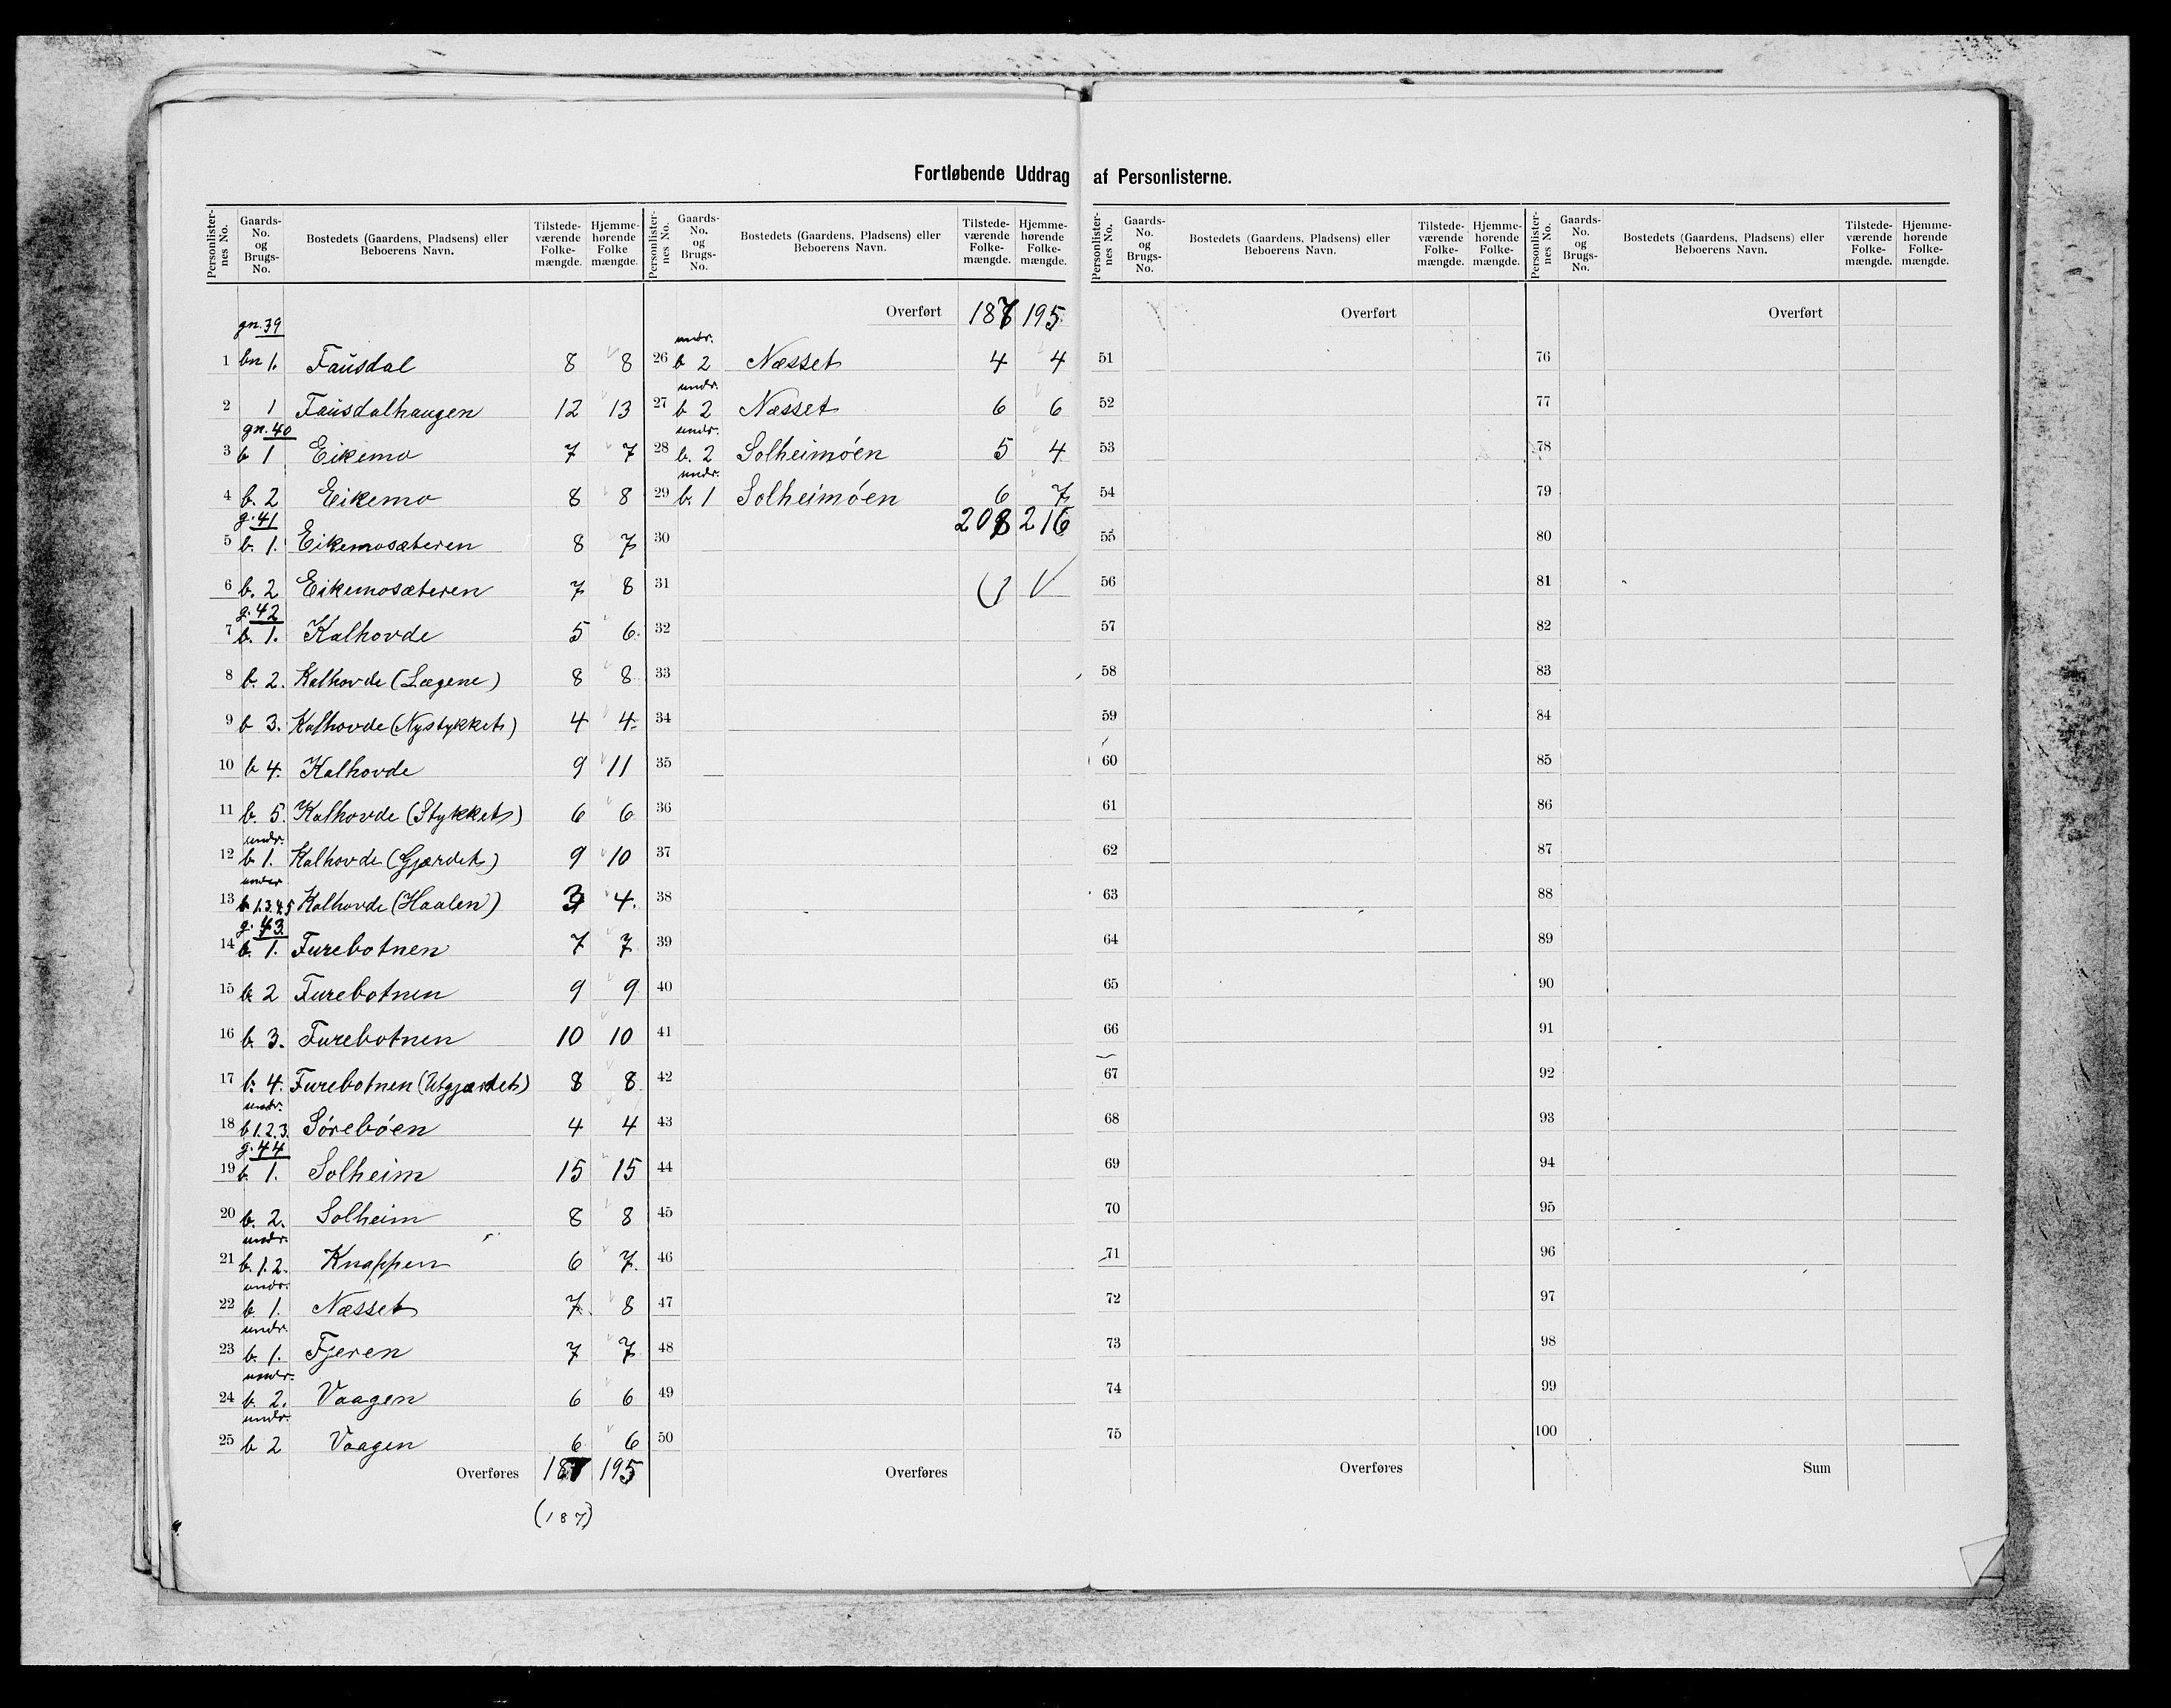 Fortløbende Uddrag af Personlisterne.
Personlisternes No. Gaards-No. og Brugs-No. Bostedets (Gaardens, Pladsens) eller Beboerens Navn. Tilstedeværende Folkemængde. Hjemmehørende Folke mængde.
gn. 39
1 bn 1. Fausdal 8 8
2 1 Fausdalhaugen 12 13
gn. 40
3 b 1 Eikemo 7 7
4 b. 2 Eikemo 8 8
g. 41
5 b. 1. Eikemosæteren 8 7
6 b. 2 Eikemosæteren 7 8
g. 42
7 b. 1. Kalhovde 5 6.
8 b. 2. Kalhovde (Lægene) 8 8
9 b 3. Kalhovde (Nystykket) 4 4.
10 b 4. Kalhovde 9 11
11 b. 5. Kalhovde (Stykket) 6 6
undr.
12 b 1. Kalhovde (Gjærdet) 9 10
under
13 b 1.3.4.5 Kalhovde (Haalen) 3 4.
g. 43.
14 b. 1. Furebotnen 7 7
15 b. 2 Furebotnen 9 9
16 b. 3. Furebotnen 10 10
17 b. 4. Furebotnen (Utgjærdet) 8 8
undr.
18 b 1.2.3. Sørebøen 4 4
g. 44
19 b. 1. Solheim 15 15
20 b. 2. Solheim 8 8
undr.
21 b. 1.2. Knappen 6 7.
undr.
22 b. 1. Næsset 7. 8
undr.
23 b. 1. Fjeren 7 7
undr.
24 b. 2. Vaagen 6 6
undr.
25 b 2 Vaagen 6 6
Overføres 187 195
(187)
Personlisternes No. Gaards-No. og Brugs-No. Bostedets (Gaardens, Pladsens) eller Beboerens Navn. Tilstedeværende Folkemængde. Hjemmehørende Folkemængde.
Overført 187 195.
undr.
26 b 2 Næsset 4 4
undr.
27 b 2 Næsset 6 6
undr.
28 b. 2 Solheimøen 5 4
undr.
29 b. 1 Solheimøen 6 7
208 216
30
31
32
33
34
35
36
37
38
39
40
41
42
43
44
45
46
47
48
49
50
Overføres
Personlisternes No. Gaards-No. og Brugs-No. Bostedets (Gaardens, Pladsens) eller Beboerens Navn. Tilstedeværende Folkemængde. Hjemmehørende Folkemængde.
Overført
51
52
53
54
55
56
57
58
59
60
61
62
63
64
65
66
67
68
69
70
71
72
73
74
75
Overføres
Personlisternes No. Gaards-No. og Brugs-No. Bostedets (Gaardens, Pladsens) eller Beboerens Navn. Tilstedeværende Folkemængde. Hjemmehørende Folkemængde.
Overført
76
77
78
79
80
81
82
83
84
85
86
87
88
89
90
91
92
93
94
95
96
97
98
99
100
Sum